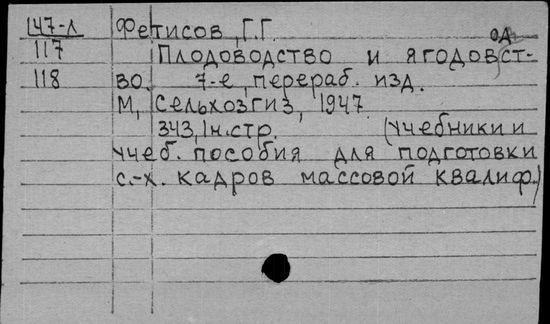 147-л Фетисов, Г.Г.
117 Плодоводство и ягодовод-
118 во. 7-е, перераб. изд.
М, Сельхозгиз, 1947
343, 1н.стр. (учебники и
учеб. пособия для подготовки
с.-х. кадров массовой квалиф.)